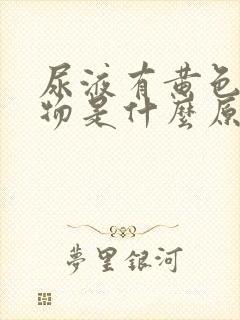 尿液有黄色
物是什麼原
夢里銀河